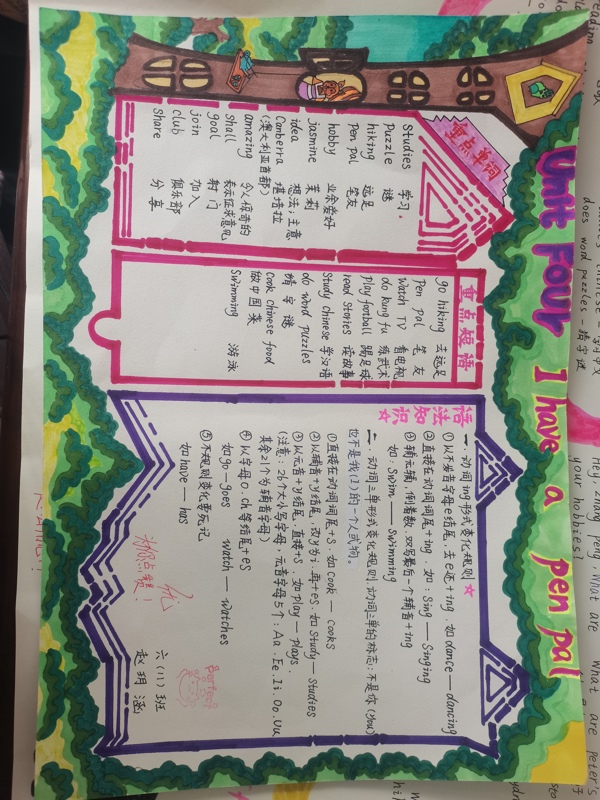 Unit Four I have a pen pal
重点单词
studies 学习。
puzzle 谜
hiking 远足
pen pal 笔友
hobby 业余爱好
jasmine 茉莉
idea 想法;主意
Canberra 堪培拉
(澳大利亚首都)
amazing 令人惊奇的
shall 表示征求意见
goal 射门
join 加入
club 俱乐部
share 分享
重点短语
go hiking 去远足
pen pal 笔友
watch TV 看电视
do kung fu 练武术
play football 踢足球
read stories 读故事
study chinese 学汉语
do word puzzles
猜字谜
cook chinese food
做中国菜
swimming 游泳
语法知识
一、动词ing形式变化规则
①以不发音字母e结尾,去e还+ing.如dance—dancing
②直接在动词词尾+ing.如:sing—singing
③辅元辅,倒着数,双写最后一个辅音+ing
如:swim—swimming
二、动词三单形式变化规则(动词三单的标志:不是你(you)
也不是我(I)的一个人或物。
①直接在动词词尾+s.如cook—cooks
②以辅音+y结尾,改y为i,再+es.如study—studies
③以元音+y结尾,直接+s 如play—plays.
(注意:26个大小写字母,元音字母5个:Aa.Ee.Ii.Oo.Uu
其余21个为辅音字母)
④以字母o.ch等结尾+es
如go—goes watch—watches
⑤不规则变化要玩记。
如have—has
优
点赞!
perfect
六(11)班
赵玥涵
does word puzzles - 猜字谜
Hey, Zhang Peng, What are
your hobbies?